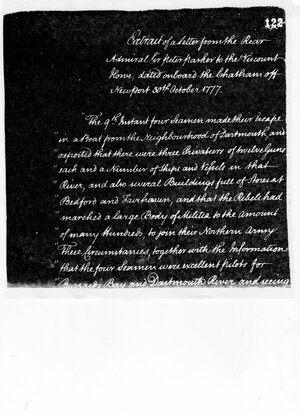 122
Extract of a Letter from the Rear
Admiral Sir Peter Parker to the Viscount
Howe, dated on board the Chatham off
Newport 30th October 1777.
The 9th Instant four Seamen made their Escape
in a Boat from the Neighbourhood of Dartmouth, and
reported that there were three Privateers of twelve Guns
each and a Number of Ships and Vessels in that
River, and also several Buildings full of Stores at
Bedford and Fairhaven, and that the Rebels had
marched a large Body of Militia to the Amount
of many Hundreds, to join their Northern Army.
These Circumstances, together with the Information
that the four Seamen were excellent pilots for
Bay and Dartmouth River, and seeing